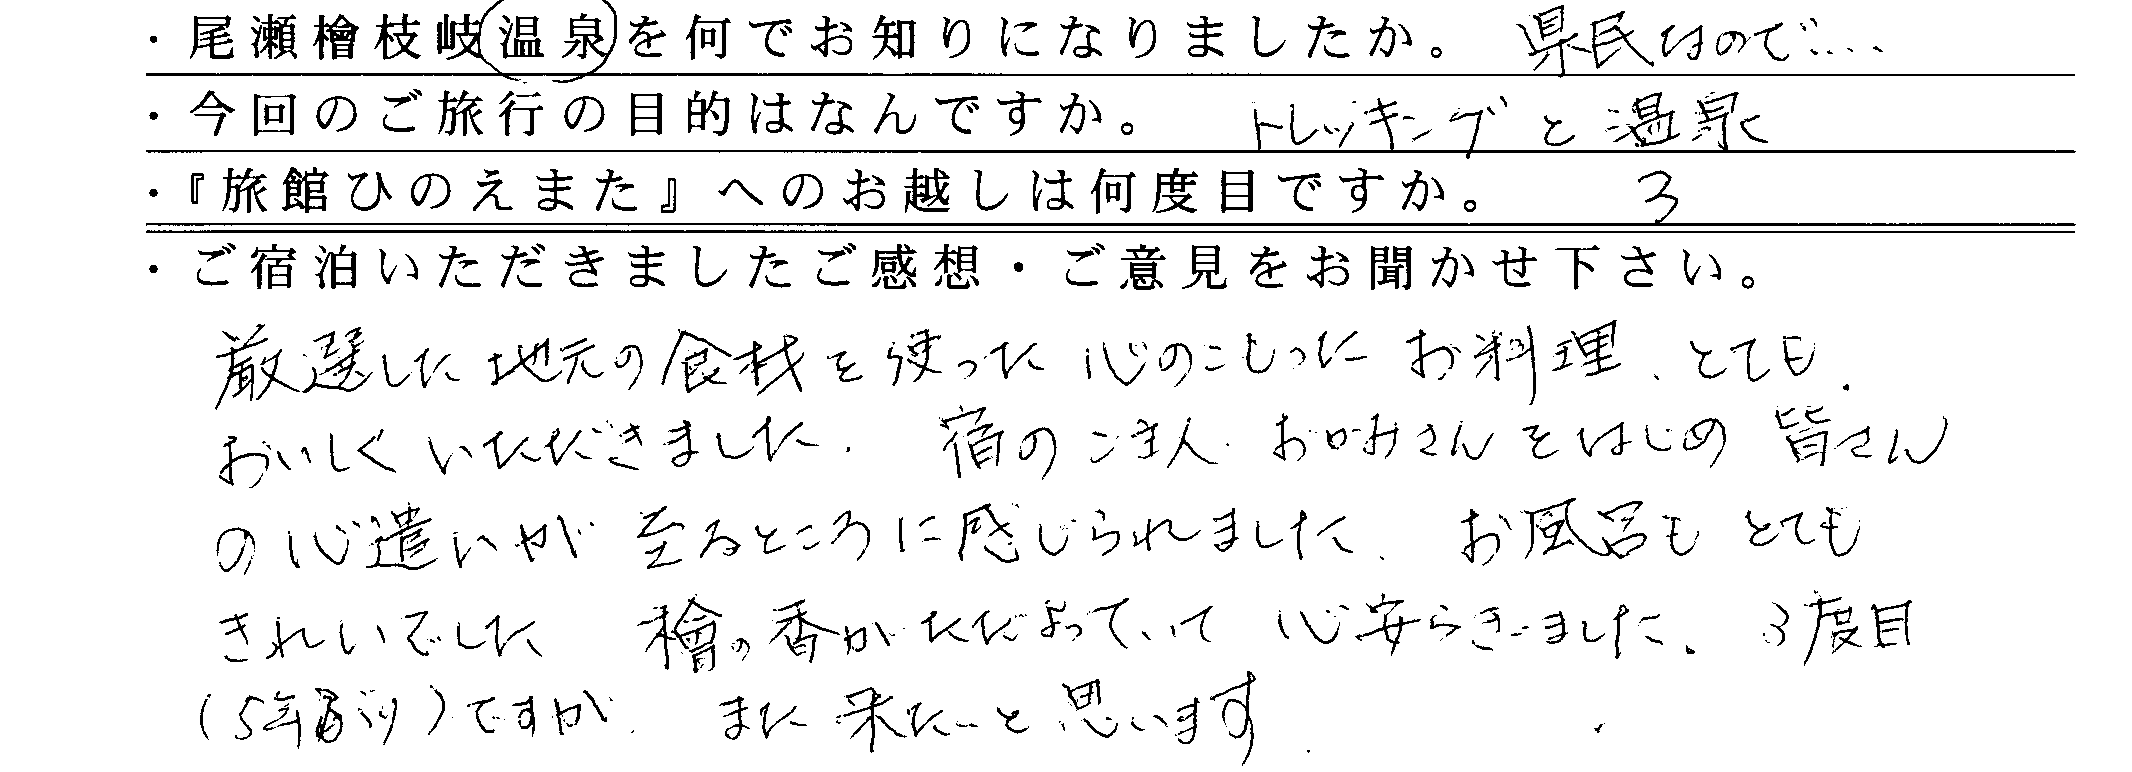 ・尾瀬檜枝岐温泉を何でお知りになりましたか。 県民なので…..
・今回のご旅行の目的はなんですか。 トレッキングと温泉
・『旅館ひのえまた』へのお越しは何度目ですか。 3
・ご宿泊いただきましたご感想・ご意見をお聞かせ下さい。
厳選した地元の食材を使った心のこもったお料理、とても
おいしくいただきました。宿のご主人、おかみさんをはじめ皆さん
の心遣いやが至るところに感じられました。お風呂もとても
きれいでした 檜の香がただよっていて心安らぎました。3度目
(5年ぶり)ですが、また来たいと思います